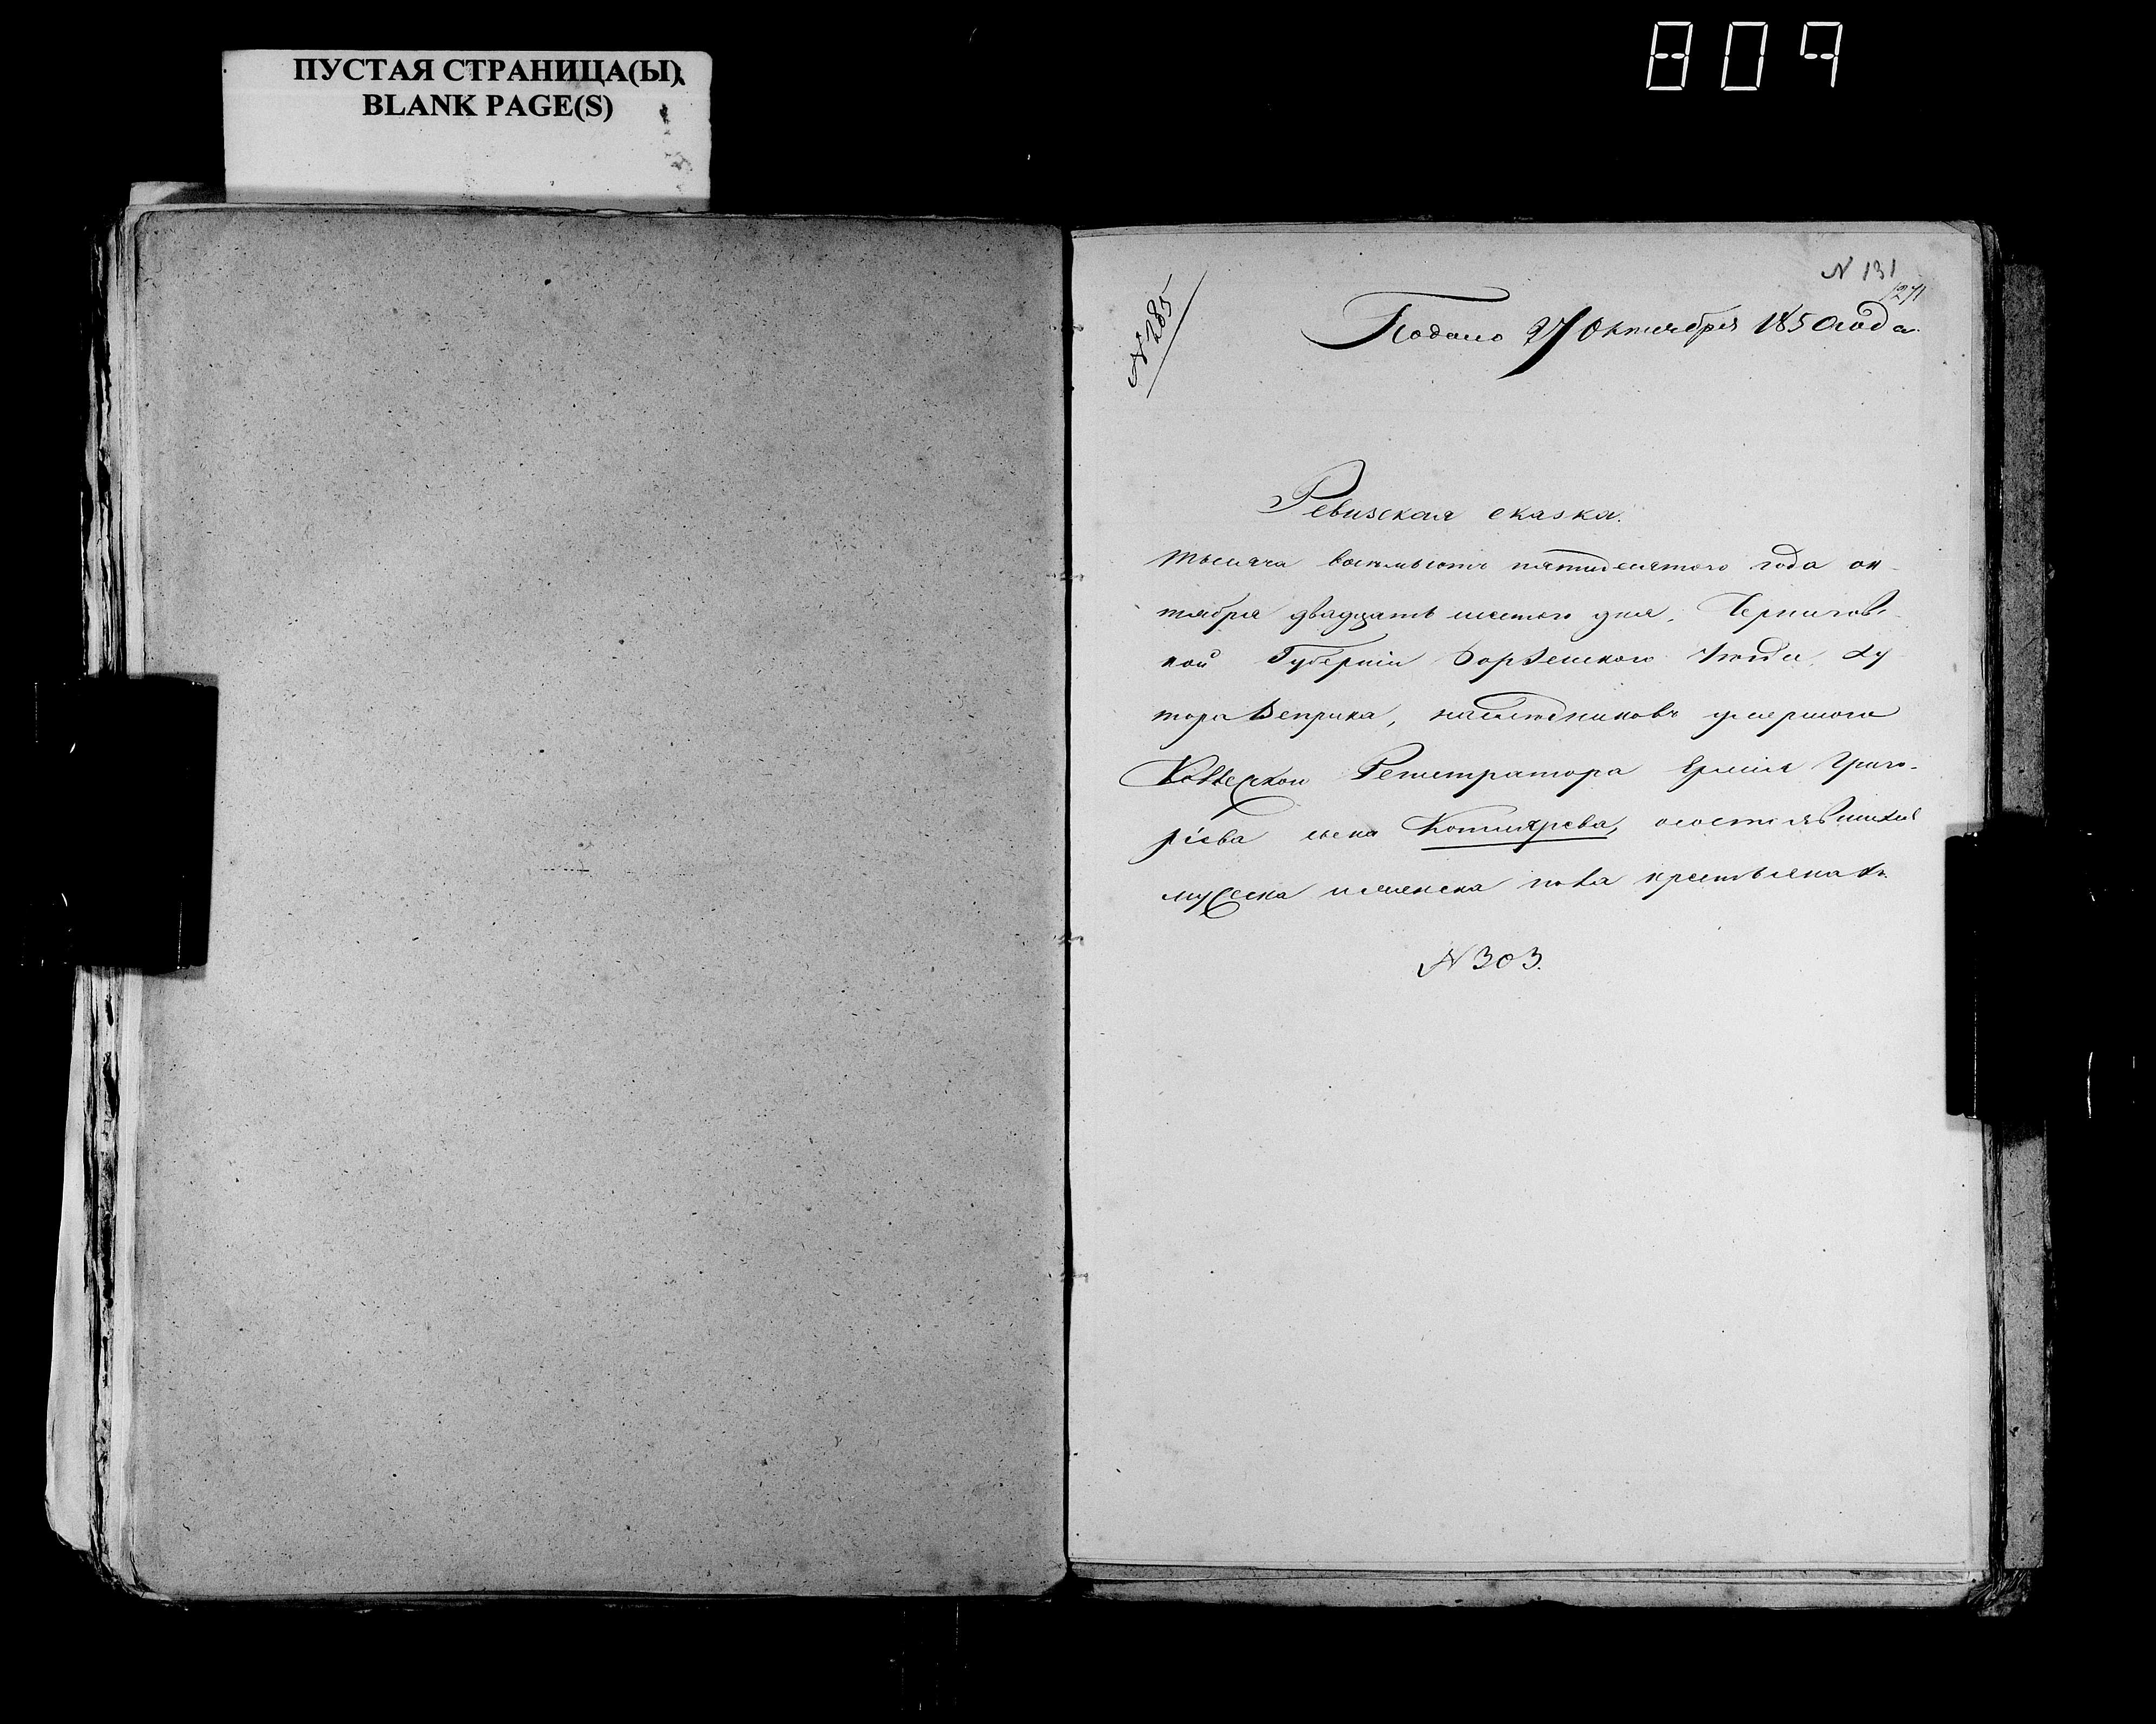 ПУСТАЯ СТРАНИЦА(Ы)
BLANK PAGE(S)
809
N 131
1271
N 285
Подано 27 Октября 1850 года.
Ревизская сказка.
Тысяча восемьсотъ пятидесятого года ок-
тября двадцать шестого дня, Чернигов-
кой Губерніи Борзенского Уѣзда, Ху
тора Веприка, наслѣдниковъ умершого
Регистратора Григо-
рієва сына Котлярева, о состоявшихъ
мужеска и женска пола крестьянахъ.
N 303.